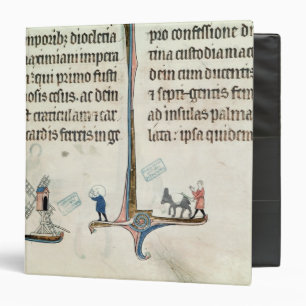 nporibꝫ dioclecia
naximiani imperꝫ
n: qui primo fusti
osis cesus. ac dein
craticulam ⁊ cat
card is ferreis in ge
pro confessione di
rina custodia mac
dein cum ducentis
⁊ septigentis femi
ad insulas palma
lata: ipsa quidem